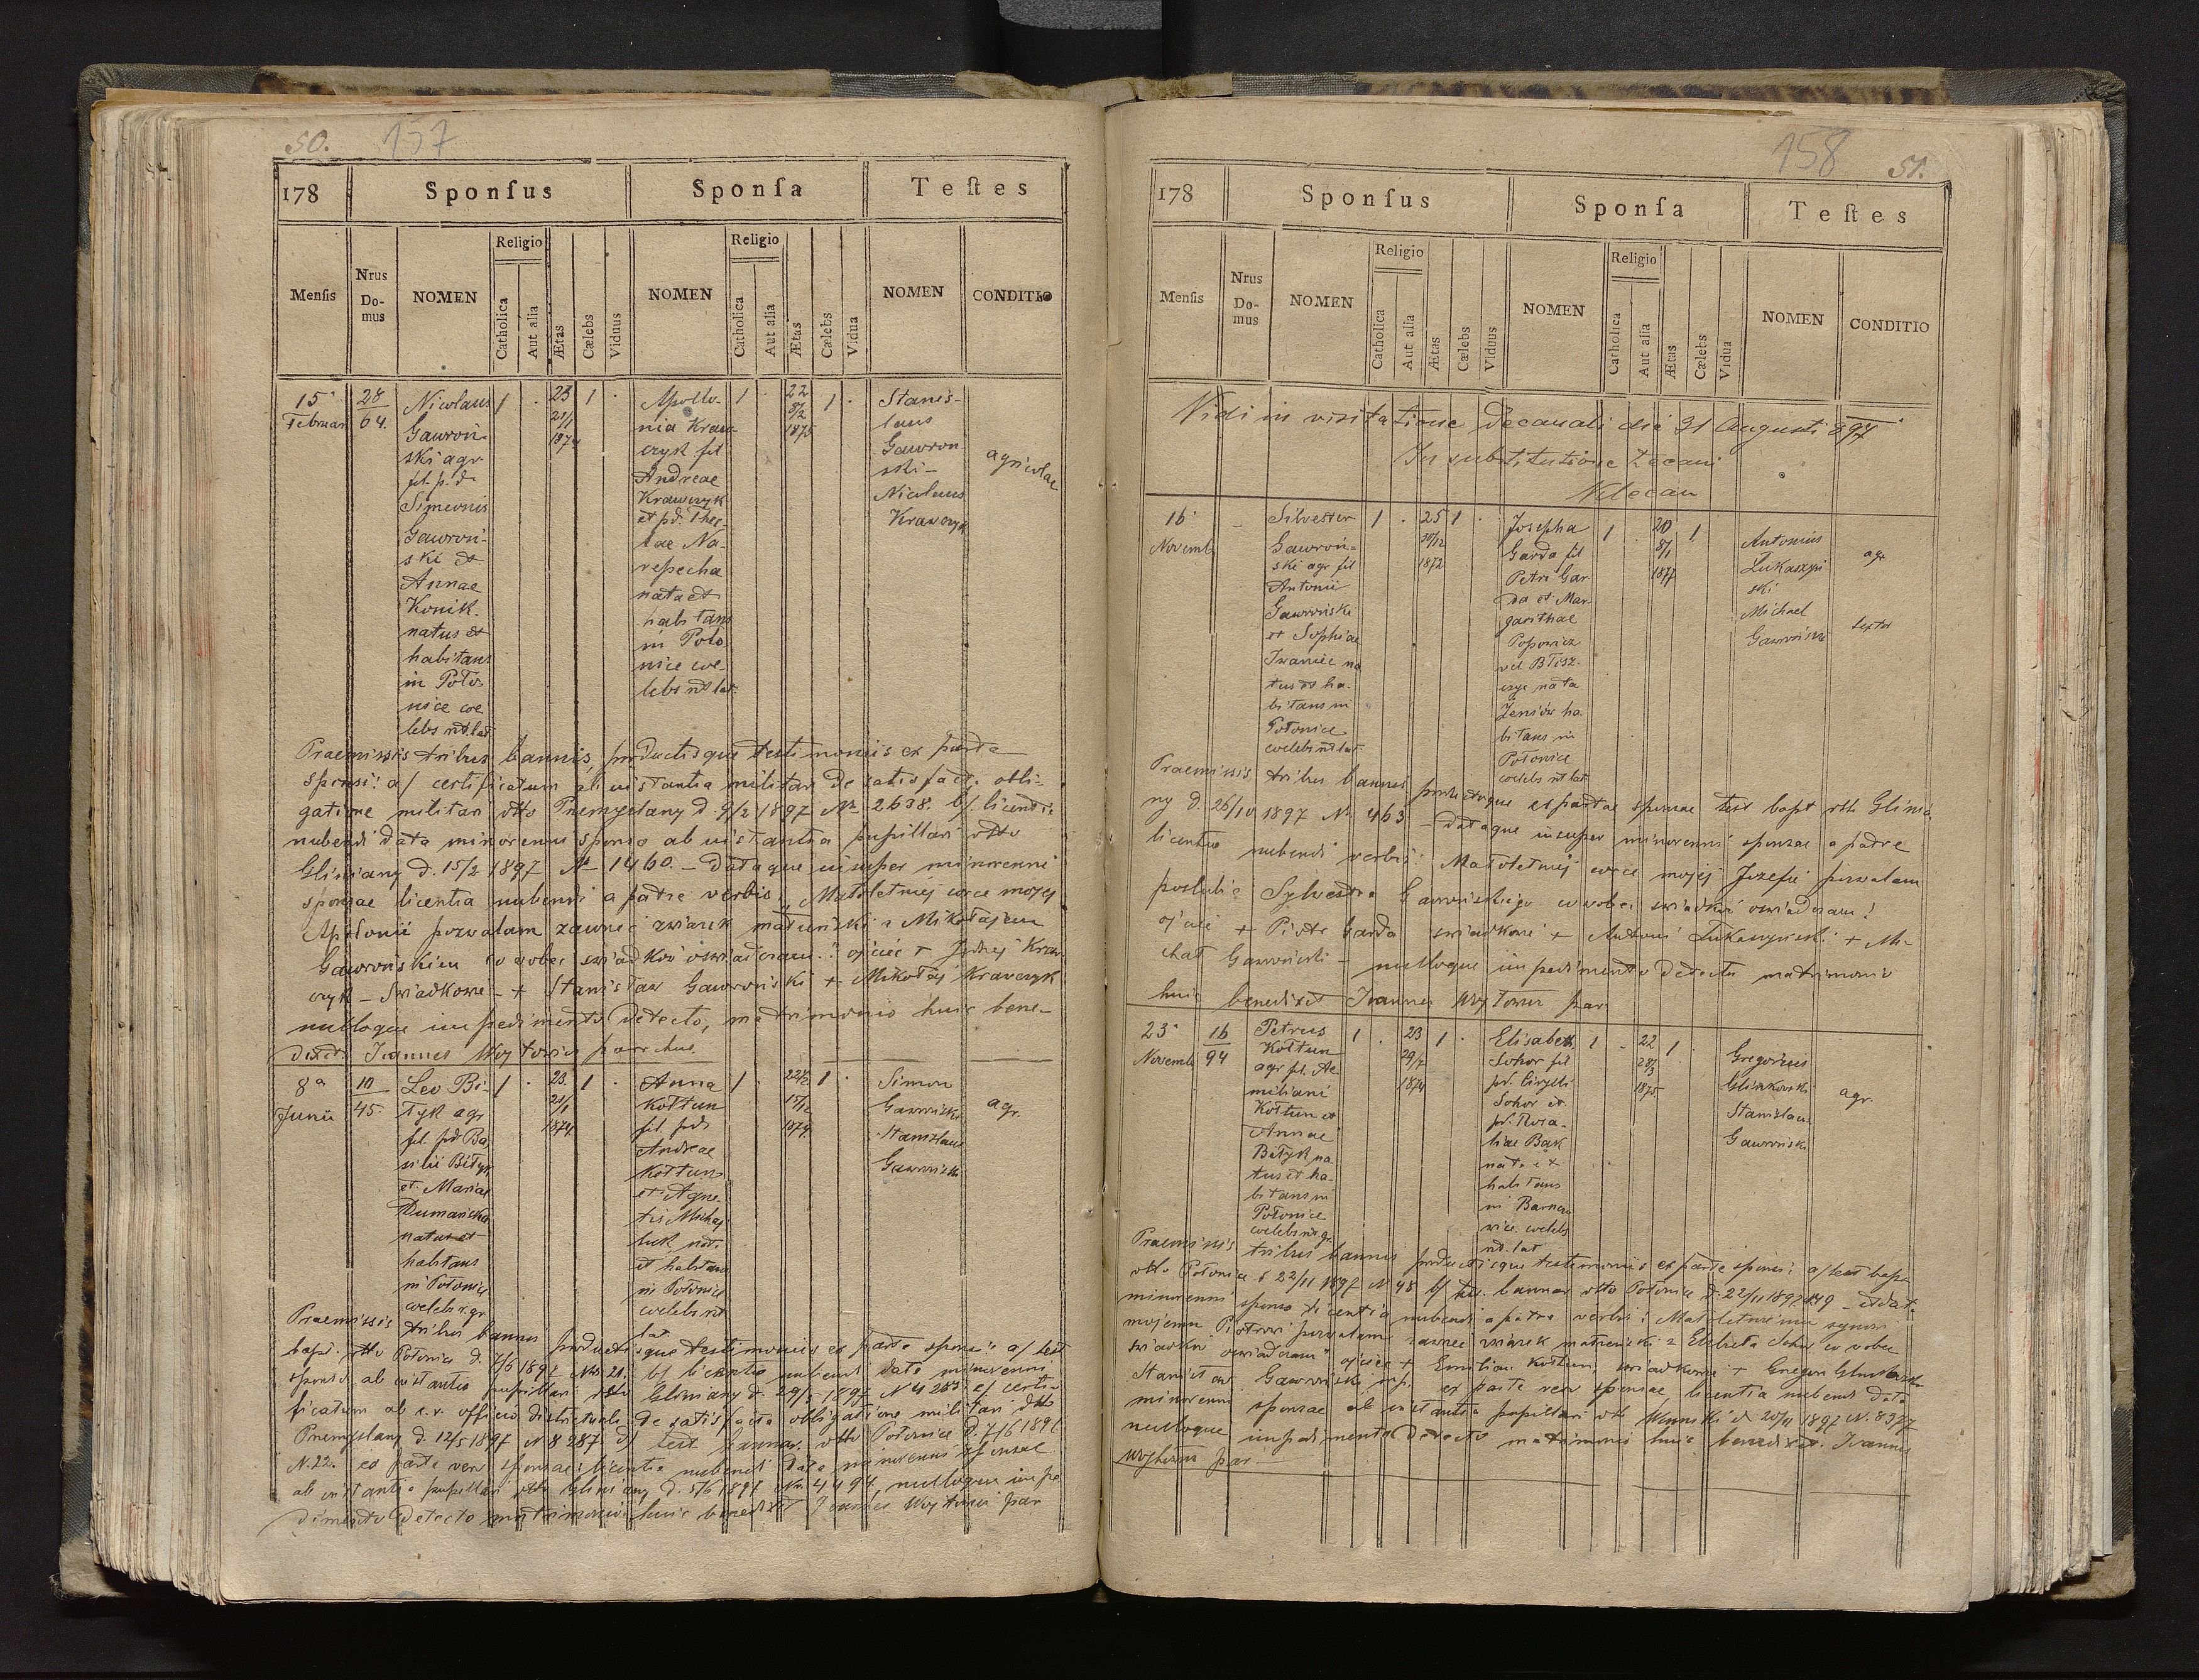 50. 157
178 Sponsus Sponsa Testes
Mensis Nrus Domus NOMEN Religio Catholica Aut alia Ætas Cælebs Viduus NOMEN Religio Catholica Aut alia Ætas Cælebs Vidua NOMEN CONDITIO
15a
Februar
28
64.
Nicolaus
Gawroń-
ski agr
fil. p. d
Simeonis
Gawroń-
ski et
Annae
Konik.
natus et
habitans
in Poło-
nice coe
lebs rit. lat
1 . 23 1 .
21/1
1874
Apollo-
nia Kraw
czyk fil
Andreae
Krawczyk
et pd. Thec-
lae Na-
repecha
nata et
habitans
in Poło
nice coe
lebs rit lat.
1 . 22 1 .
8/2
1875
Stanis-
laus
Gawron
ski -
Nicolaus
Krawczyk
agricolae
Praemissis tribus bannis, productisque testimoniis ex parte
sponsi: a/ certificatum ab instantia militari de satisfact. obli-
gatione militari dtto Przemyslany d. 9/2 1897 Nr 2638. b/ licentia
nubendi data minorenni sponso ab instantia pupillari dtto
Gliniany d. 15/2 1897 Nr 1460. - Dataque insuper minorenni
sponsae licentia nubendi a patre verbis: „Małoletniej córce mojej
Apolonii pozwalam zawrzeć związek małżeński z Mikołajem
Gawrońskim co wobec świadków oświadczam": ojciec + Jędrzej Kraw
czyk - Świadkowie - + Stanisław Gawroński + Mikołaj Krawczyk
nulloque impedimento detecto, matrimonio huic bene-
dixit Ioannes Wojtowicz parochus.
8a
Junii
10
45
Leo Bi-
łyk agr
fil. pd. Ba
silii Biłyk
et Mariae
Dumańska
natus et
habitans
in Połonice
coelebs r. gr
1 . 23. 1 .
21/1
1874
Anna
Kołtun
fil. pd.
Andreae
Kołtun
et Agne-
tis Michaj
luk nat.
et habitans
in Połonice
coelebs rit
lat.
1 . 22½ 1 .
15/12
1874
Simon
Gawroński
Stanislaus
Gawroński
agr.
Praemissis tribus bannis productisque testimoniis ex parte sponsi: a/ test
bapt. dtto Połonice d. 7/6 1897 Nr 21. b/ licentia nubendi data minorenni
sponso ab instantia pupillari dtto Gliniany d. 29/5 1897 N 4283 c/ certi-
ficatum ab c.r. officio districtuali de satisfacta obligatione militari dtto
Przemyslany d. 12/5 1897 N 8287 d/ test. bannor. dtto Połonice d. 7/6 1897
N. 22. ex parte vero sponsae: licentia nubendi data minorenni sponsae
ab instantia pupillari dtto Gliniany d. 5/6 1897 Nr. 4494, nulloque impe
dimento detecto matrimonio huic benedixit Joannes Wojtowicz par
158 51.
178 Sponsus Sponsa Testes
Mensis Nrus Domus NOMEN Religio Catholica Aut alia Ætas Cælebs Viduus NOMEN Religio Catholica Aut alia Ætas Cælebs Vidua NOMEN CONDITIO
Vidi in visitatione Decanali die 31 Augusti 897
In substitutione Decani
16a
Novemb
-
Silvester
Gawroń-
ski agr fil
Antonii
Gawroński
et Sophiae
Iwaniec na
tus et ha-
bitans in
Połonice
coelebs rit lat.
1 . 25 1 .
30/12
1872
Josepha
Garda fil
Petri Gar-
da et Mar-
garithae
Popowicz
vel Błisz-
czyc nata
Żeniów ha
bitans in
Połonice
coelebs rit lat
1 . 20 1
8/1
1877
Antonius
Łukaszyń
ski
Michael
Gawroński
agr
textor
Praemissis tribus bannis productoque ex parte sponsae test bapt dtto Glinia
ny d. 26/10 1897 Nr 463 - dataque insuper minorenni sponsae a patre
licentia nubendi verbis: Małoletniej córce mojej Józefie pozwalam
poślubić Sylwestra Gawrońskiego co wobec świadków oświadczam!
ojciec + Piotr Garda świadkowie + Antoni Łukaszyński + Mi-
chał Gawroński - nulloque impedimento detecto matrimonio
huic benedixit Ioannes Wojtowicz par
23a
Novemb
16
94
Petrus
Kołtun
agr fil. Ae
miliani
Kołtun et
Annae
Biłyk na
tus et ha-
bitans in
Połonice
coelebs rit gr.
1 . 23 1 .
29/7
1874
Elisabeth
Sohor fil
pd. Cirylli
Sohor et
pd. Rosa-
liae Bąk
nata et
habitans
in Barnou
vice coelebs
rit. lat
1 . 22 1 .
28/3
1875.
Gregorius
Glinkowski
Stanislaus
Gawroński
agr.
Praemissis tribus bannis productisque testimoniis ex parte sponsi: a/ test bapt
dtto Połonice d 22/11 1897 N 48 b/ test. bannor dtto Połonice d. 22/11 1897 N 49 - et dat.
minorenni sponso licentia nubendi a patre verbis: Małoletniemu synowi
mojemu Piotrowi pozwalam zawrzeć związek małżeński z Elżbietą Sohor co wobec
świadków oświadczam" ojciec + Emilian Kołtun, świadkowie + Gregor Glinkowski
Stanisław Gawroński mp. ex parte vero sponsae, licentia nubendi data
minorenni sponsae ab instantia pupillari dtto Winniki d 20/11 1897 N. 8377
nulloque impedimento detecto matrimonio huic benedixit. Ioannes
Wojtowicz par.